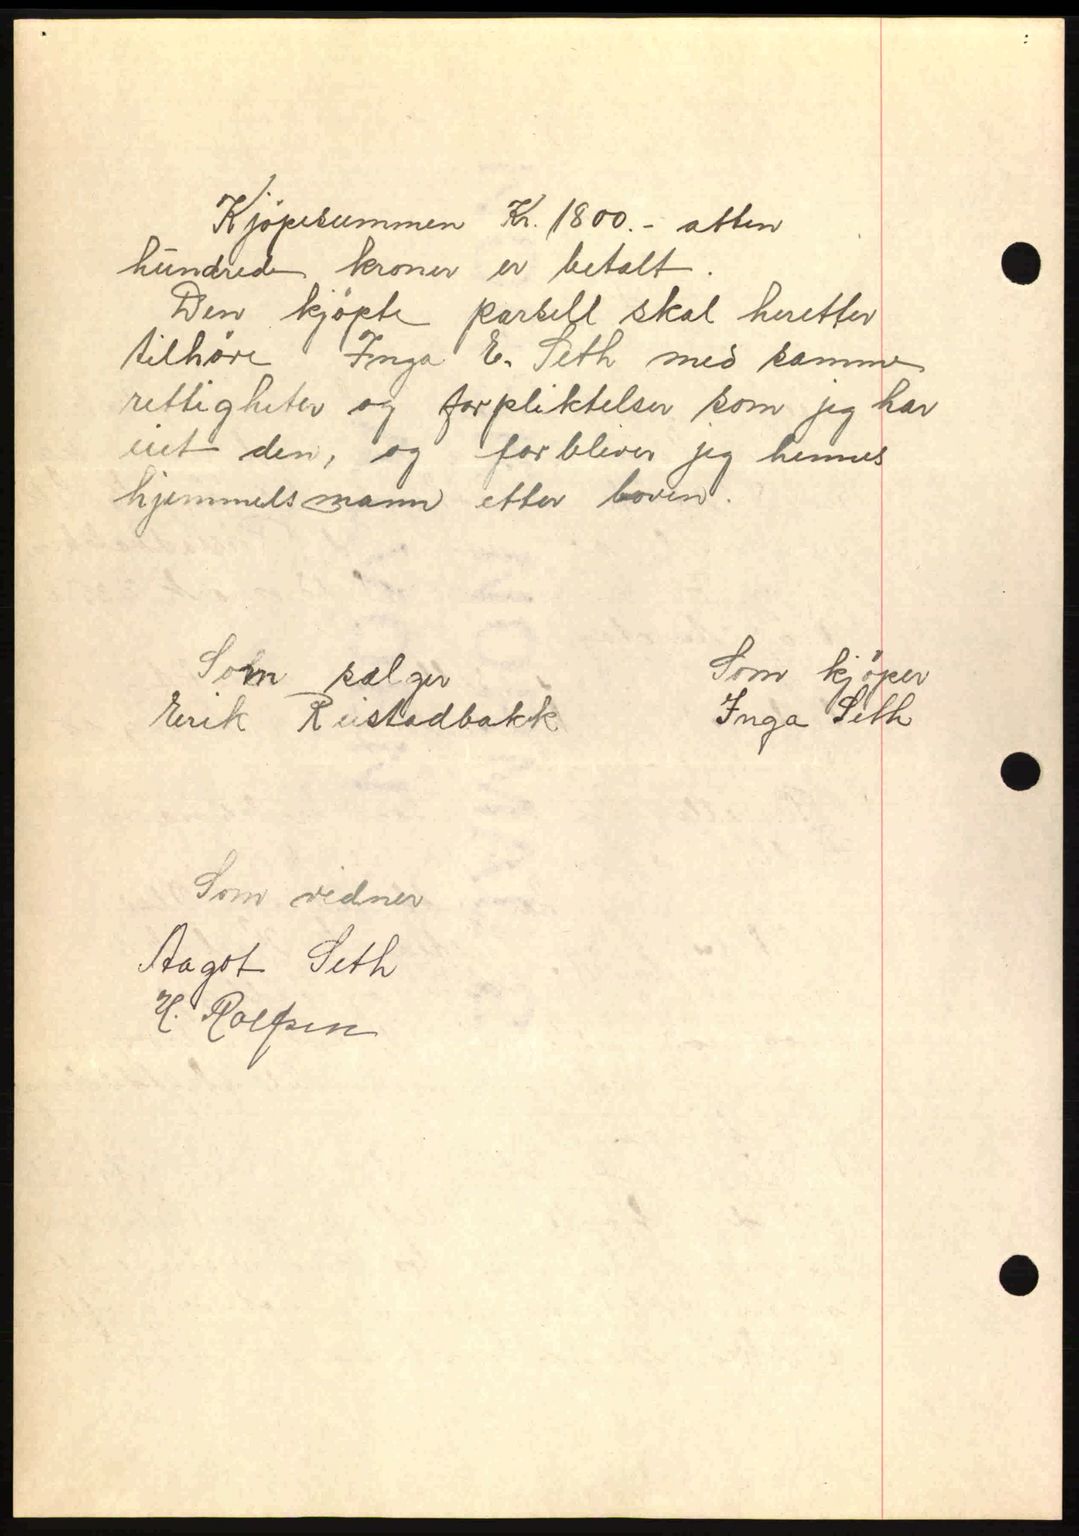 Kjöpesummen Kr. 1800.- atten
hundrede kroner er betalt.
Den kjöpte parsell skal heretter
tilhöre Inga E. Seth med samme
rettigheter og forpliktelser som jeg har
eiet den, og forbliver jeg hennes
hjemmelsmann etter loven.
Som selger
Som kjöper
Erik Reistadbakk
Inga Seth
Som vidner
Aagot Seth
H. Rolfsen